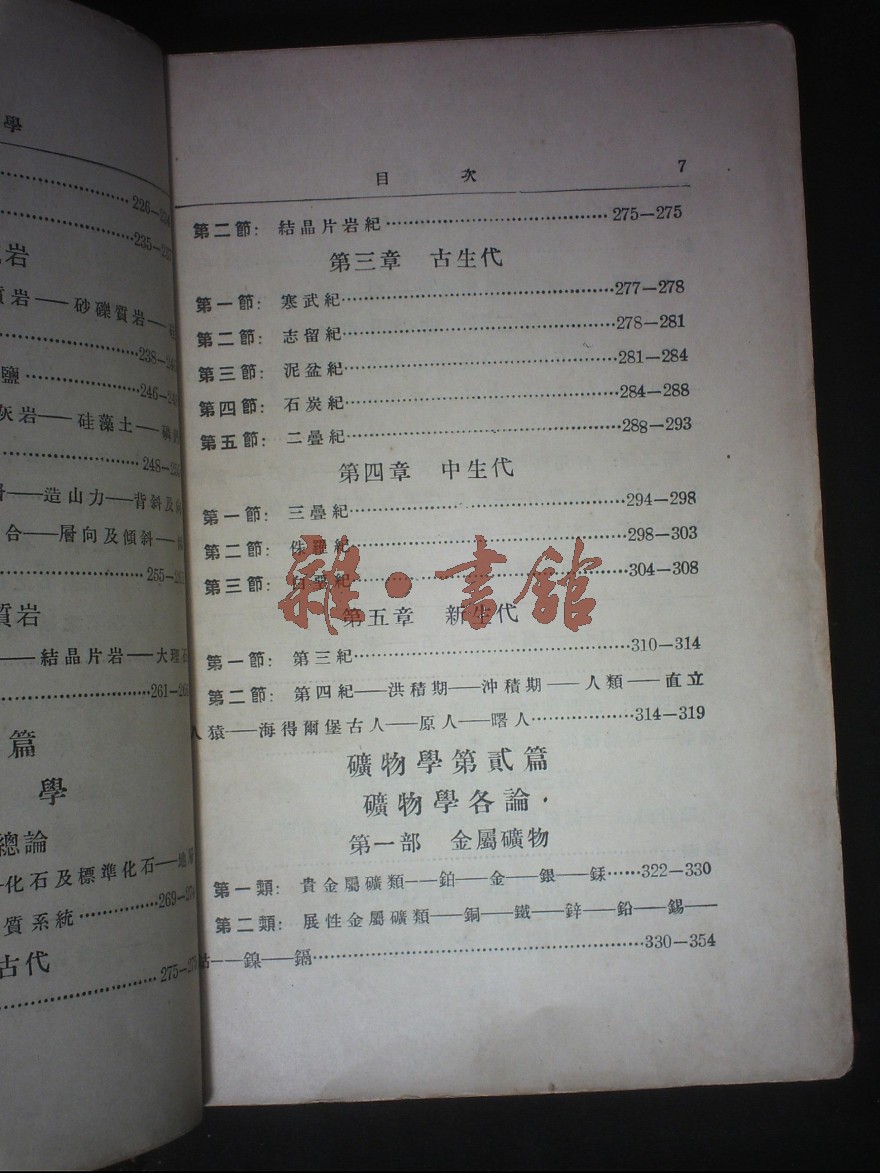 學
226—234
235—23
岩
質岩——砂礫質岩—
238—24
鹽……246—24
灰岩——硅藻土—磷
248—25
造山力——背斜及向
合——層向及傾斜—
255—2
質岩
——結晶片岩—大理石
261—26
篇
學
總論
化石及標準化石—地
質系統……269—27
古代
275—27
目 次 7
第二節: 結晶片岩紀……275—275
第三章 古生代
第一節: 寒武紀……277—278
第二節: 志留紀……278—281
第三節: 泥盆紀……281—284
第四節: 石炭紀……284—288
第五節: 二疊紀……288—293
第四章 中生代
第一節: 三疊紀……294—298
第二節: 侏羅紀……298—303
第三節: 白堊紀……304—308
雜·書館
第五章 新生代
第一節: 第三紀……310—314
第二節: 第四紀——洪積期——沖積期——人類——直立
人猿——海得爾堡古人——原人——曙人……314—319
礦物學第貳篇
礦物學各論
第一部 金屬礦物
第一類: 貴金屬礦類——鉑——金——銀——銾……322—330
第二類: 展性金屬礦類——銅——鐵——鋅——鉛——錫——
鈷——鎳——鎘……330—354